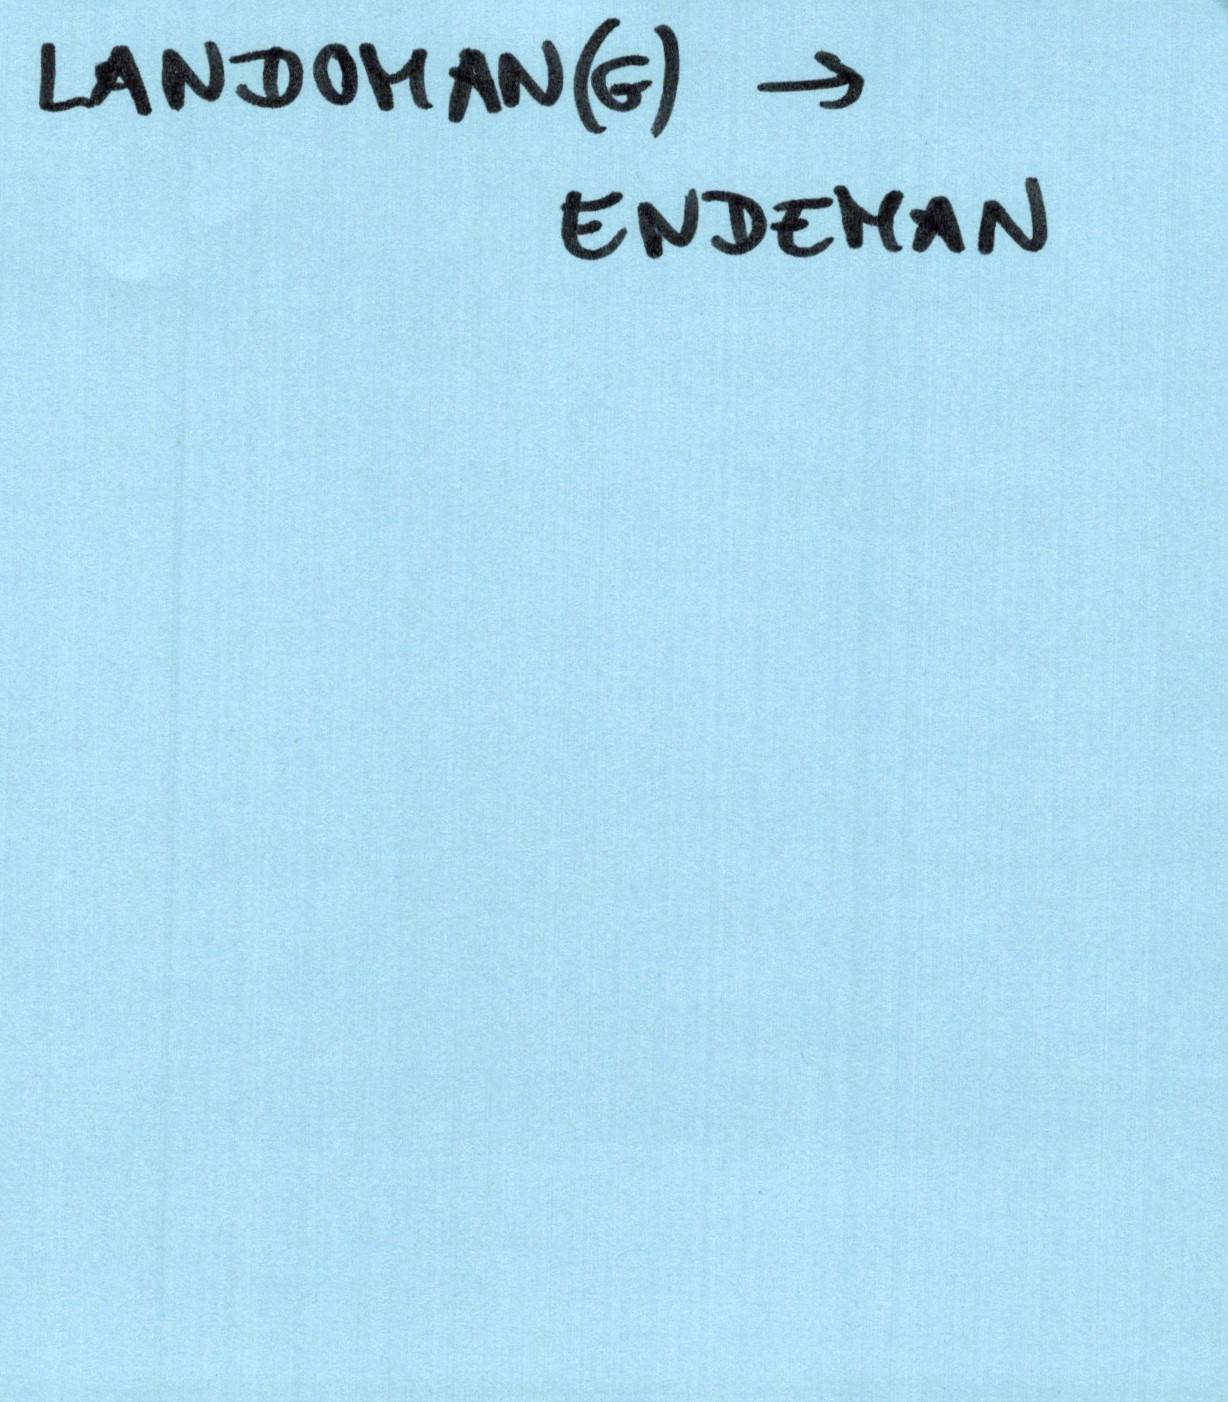 LANDOMAN(G) →
ENDEMAN